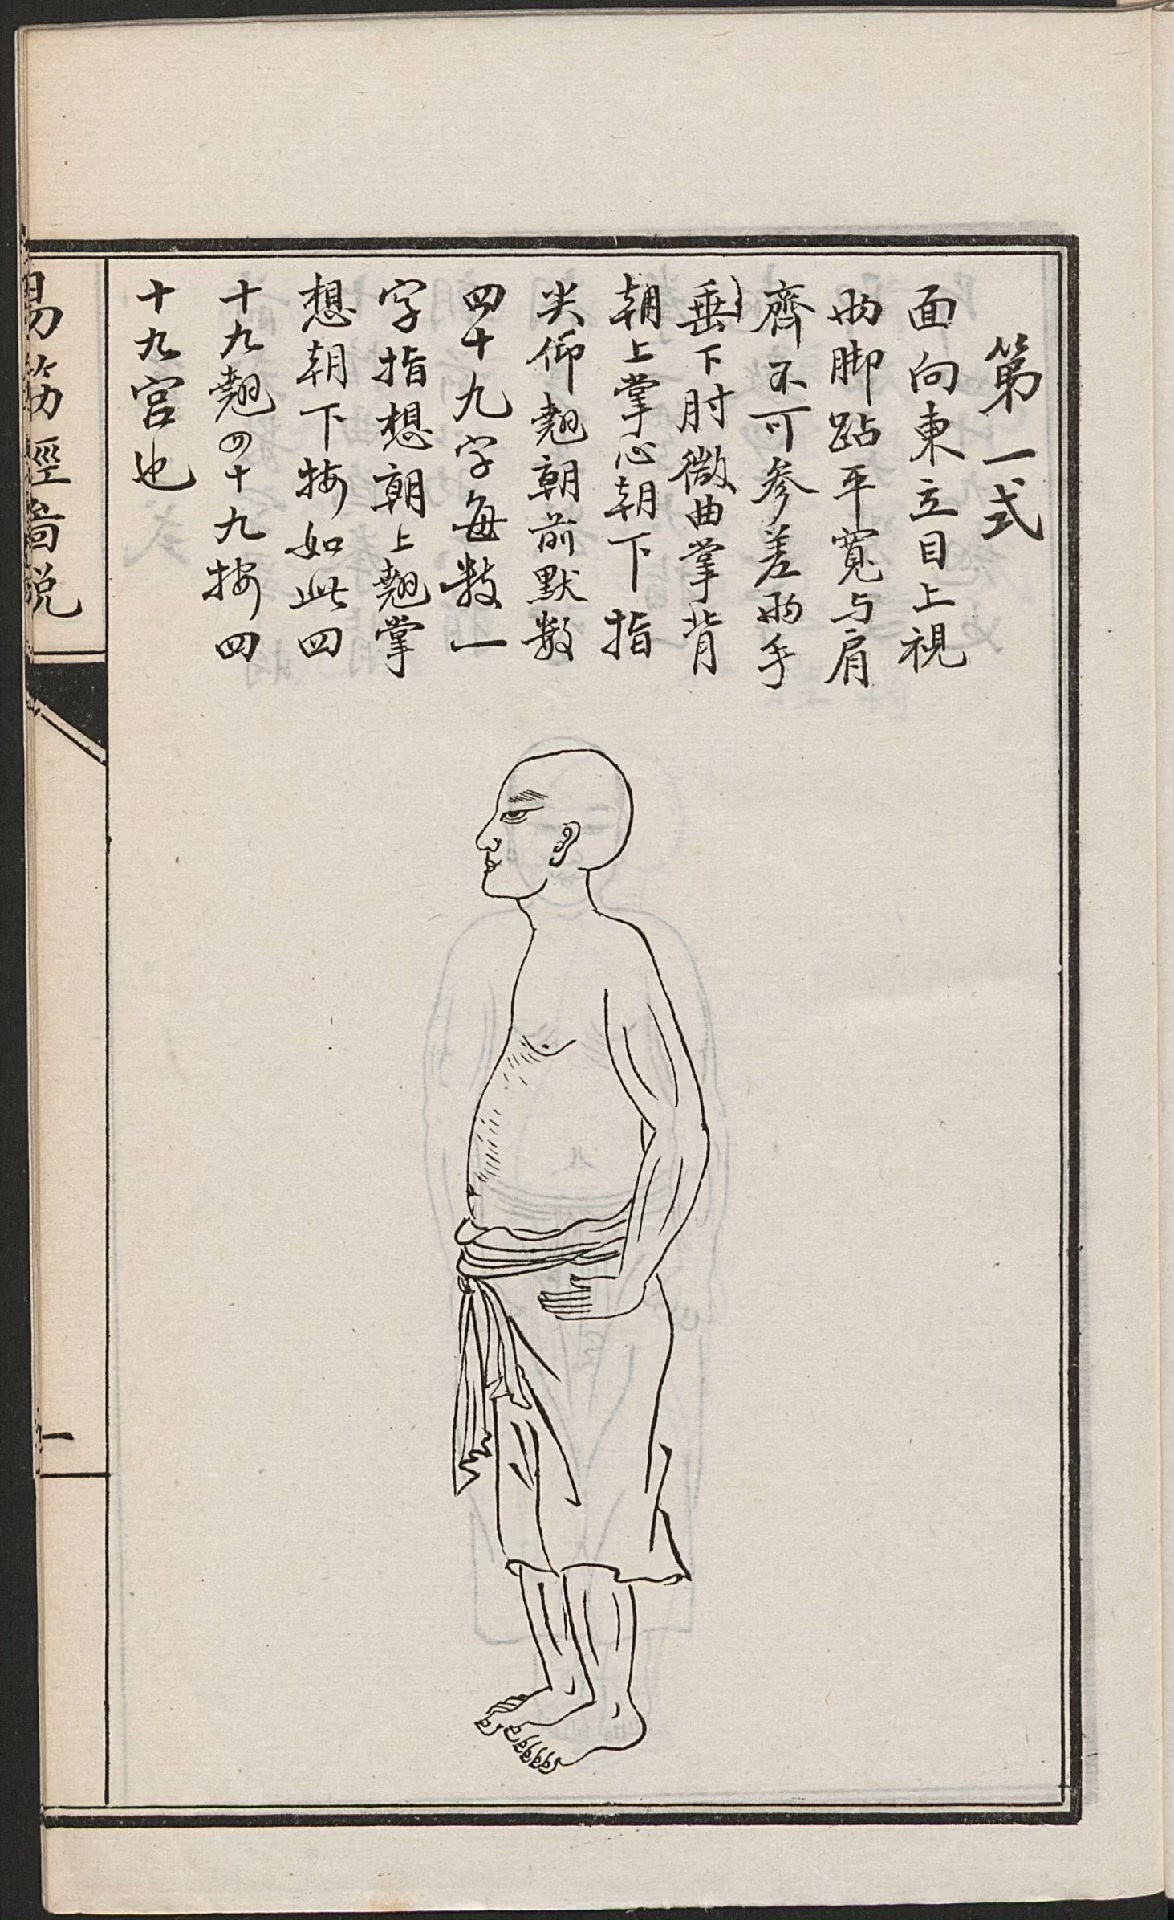 第一式
面向東立目上視
兩脚跕平寬与肩
齊不可參差兩手
垂下肘微曲掌背
朝上掌心朝下指
尖仰翹朝前默数
四十九字每数一
字指想朝上翹掌
想朝下按如此四
十九翹四十九按四
十九宫也
易筋經啚説
一